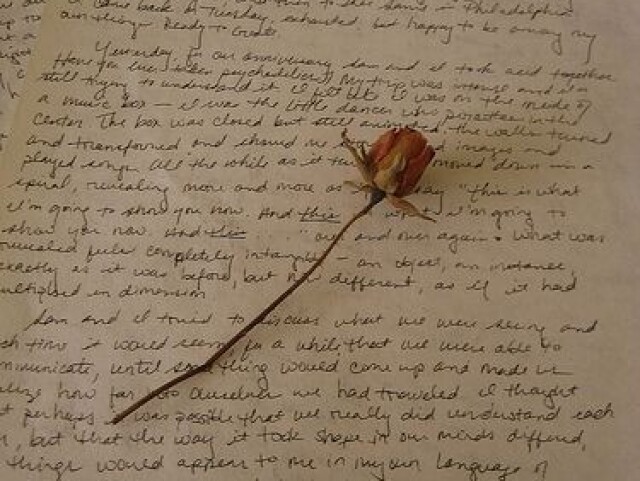 come back on Tuesday, exhausted, but happy to be among my
our things. Ready to create.
Yesterday, for our anniversary Sam and I took acid together
Have you ever taken psychedelics? My trip was intense and I'm
still trying to understand it. I felt like I was on the inside of
a music box — I was the little dancer who pirouettes in the
center. The box was closed but still animated, the walls turned
and transformed and showed me images and
played songs. All the while as it moved down in a
spiral, revealing more and more as say "this is what
I'm going to show you now. And this is what I'm going to
show you now. And this ..." over and over again. What was
revealed felt completely intangible — an object, an instance,
exactly as it was before, but now different, as if it had
multiplied in dimension
Sam and I tried to discuss what we were seeing and
each time it would seem for a while that we were able to
communicate, until something would come up and made us
realize how far into ourselves we had traveled. I thought
that perhaps it was possible that we really did understand each
, but that the way it took shape in our minds differed,
things would appear to me in my own language of